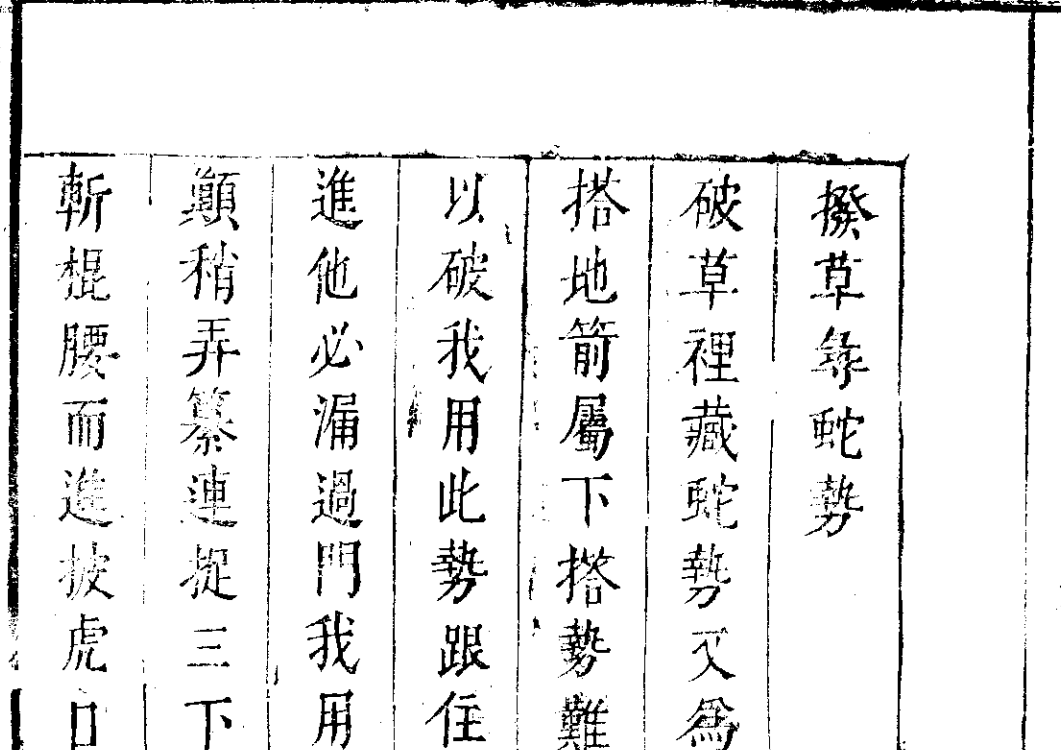 撥草尋蛇勢
破草裡藏蛇勢又為
搭地箭屬下搭勢難
以破我用此勢跟住
進他必漏過門我用
顛稍弄纂連捉三下
斬棍腰而進披虎口